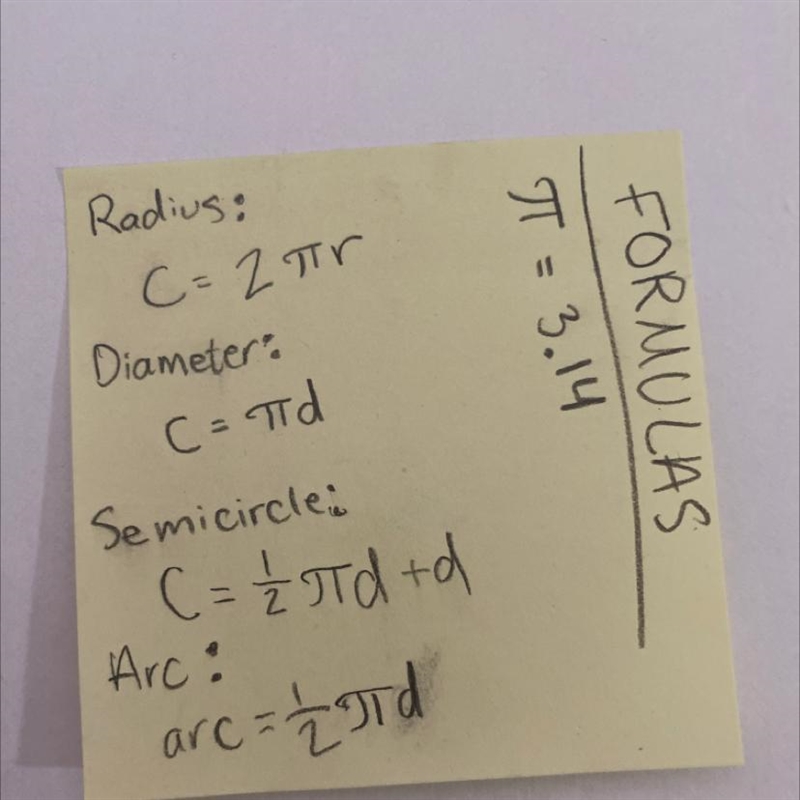 FORMULAS
π = 3.14
Radius:
C = 2πr
Diameter:
C = πd
Semicircle:
C = ½πd + d
Arc:
arc = ½πd